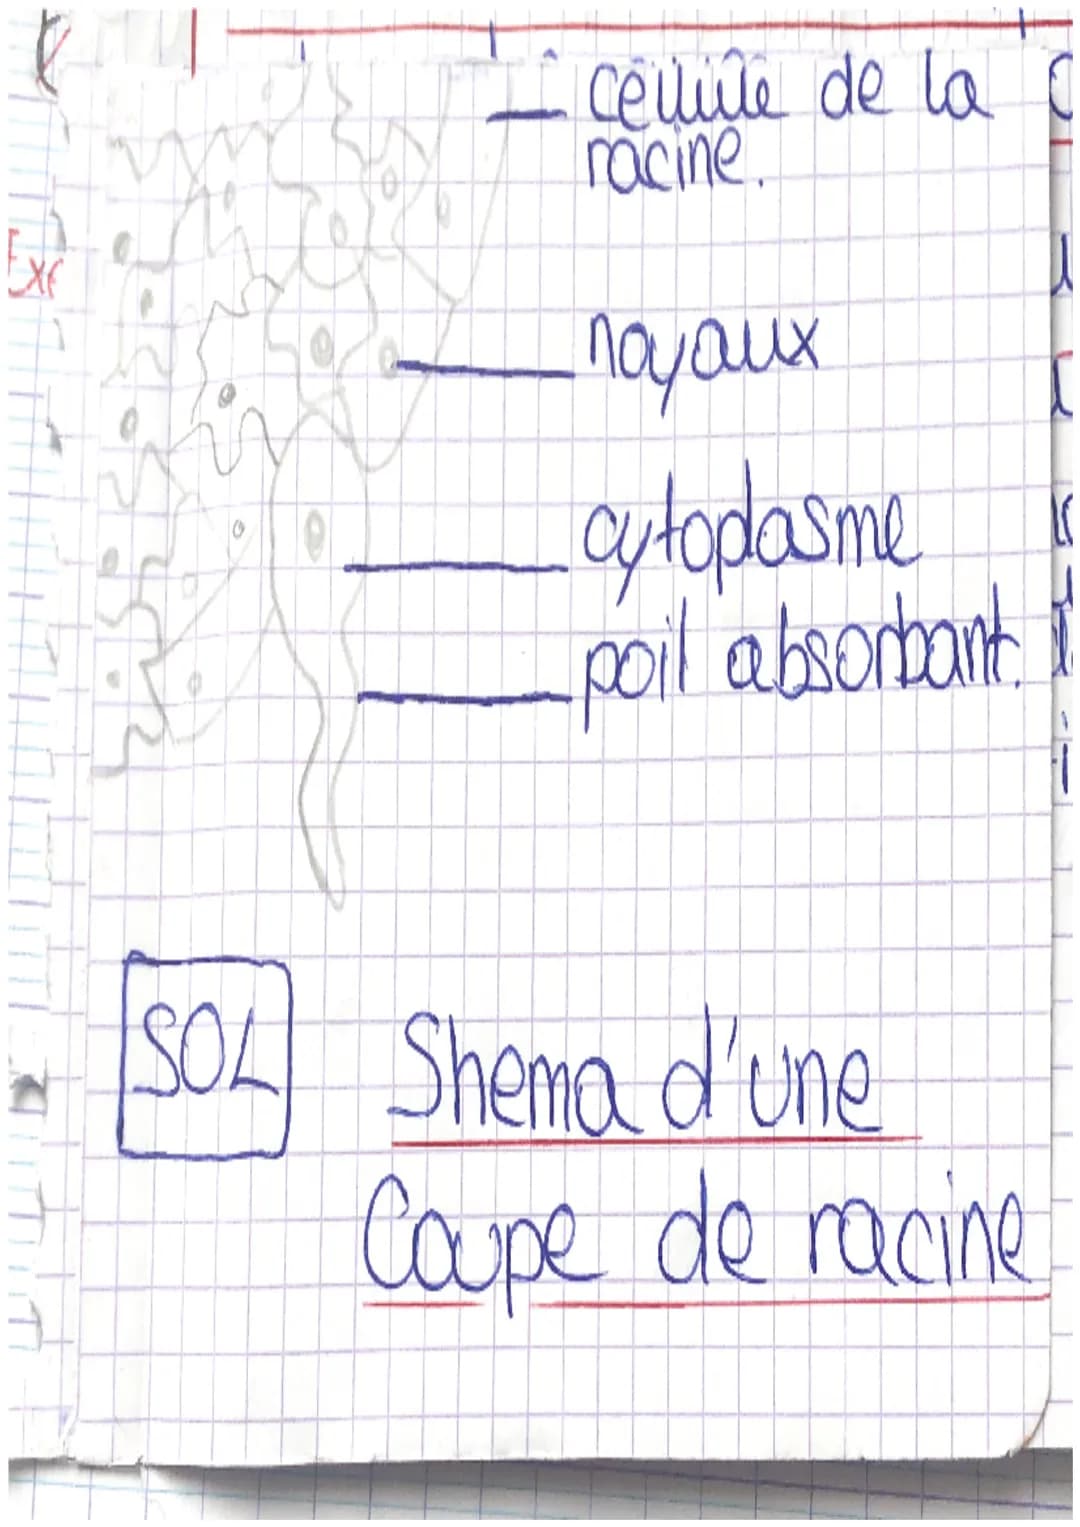 cellule de la
racine.
Exe
noyaux
cytoplasme
poil absorbant.
SOL
Shema d'une
Coupe de racine